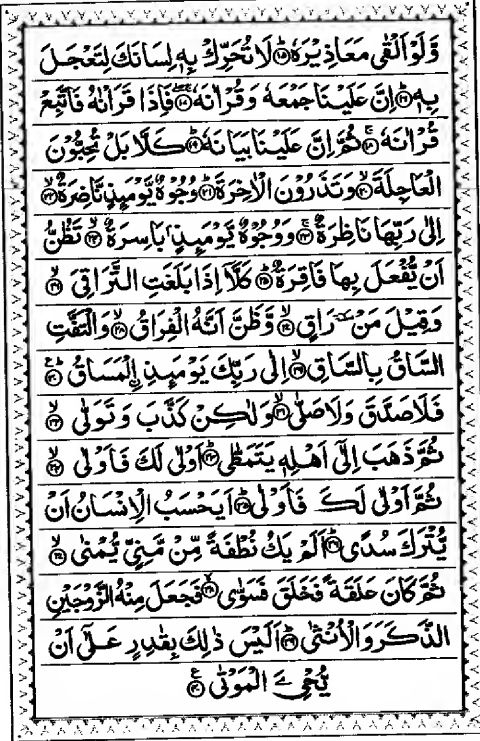 وَّلَوْ اَلْقٰى مَعَاذِيْرَهٗ ﴿۱۵﴾ لَا تُحَرِّكْ بِهٖ لِسَانَكَ لِتَعْجَلَ
بِهٖ ﴿۱۶﴾ اِنَّ عَلَيْنَا جَمْعَهٗ وَقُرْاٰنَهٗ ﴿۱۷﴾ فَاِذَا قَرَاْنٰهُ فَاتَّبِعْ
قُرْاٰنَهٗ ﴿۱۸﴾ ثُمَّ اِنَّ عَلَيْنَا بَيَانَهٗ ﴿۱۹﴾ كَلَّا بَلْ تُحِبُّوْنَ
الْعَاجِلَةَ ﴿۲۰﴾ وَتَذَرُوْنَ الْاٰخِرَةَ ﴿۲۱﴾ وُجُوْهٌ يَّوْمَئِذٍ نَّاضِرَةٌ ﴿۲۲﴾
اِلٰى رَبِّهَا نَاظِرَةٌ ﴿۲۳﴾ وَوُجُوْهٌ يَّوْمَئِذٍۭ بَاسِرَةٌ ﴿۲۴﴾ تَظُنُّ
اَنْ يُّفْعَلَ بِهَا فَاقِرَةٌ ﴿۲۵﴾ كَلَّاۤ اِذَا بَلَغَتِ التَّرَاقِيَ ﴿۲۶﴾
وَقِيْلَ مَنْ رَاقٍ ﴿۲۷﴾ وَّظَنَّ اَنَّهُ الْفِرَاقُ ﴿۲۸﴾ وَالْتَفَّتِ
السَّاقُ بِالسَّاقِ ﴿۲۹﴾ اِلٰى رَبِّكَ يَوْمَئِذِ ِۨالْمَسَاقُ ﴿۳۰﴾
فَلَا صَدَّقَ وَلَا صَلّٰى ﴿۳۱﴾ وَلٰكِنْ كَذَّبَ وَتَوَلّٰى ﴿۳۲﴾
ثُمَّ ذَهَبَ اِلٰۤى اَهْلِهٖ يَتَمَطّٰى ﴿۳۳﴾ اَوْلٰى لَكَ فَاَوْلٰى ﴿۳۴﴾
ثُمَّ اَوْلٰى لَكَ فَاَوْلٰى ﴿۳۵﴾ اَيَحْسَبُ الْاِنْسَانُ اَنْ
يُّتْرَكَ سُدًى ﴿۳۶﴾ اَلَمْ يَكُ نُطْفَةً مِّنْ مَّنِيٍّ يُّمْنٰى ﴿۳۷﴾
ثُمَّ كَانَ عَلَقَةً فَخَلَقَ فَسَوّٰى ﴿۳۸﴾ فَجَعَلَ مِنْهُ الزَّوْجَيْنِ
الذَّكَرَ وَالْاُنْثٰى ﴿۳۹﴾ اَلَيْسَ ذٰلِكَ بِقٰدِرٍ عَلٰۤى اَنْ
يُّحْيِۦَ الْمَوْتٰى ﴿۴۰﴾